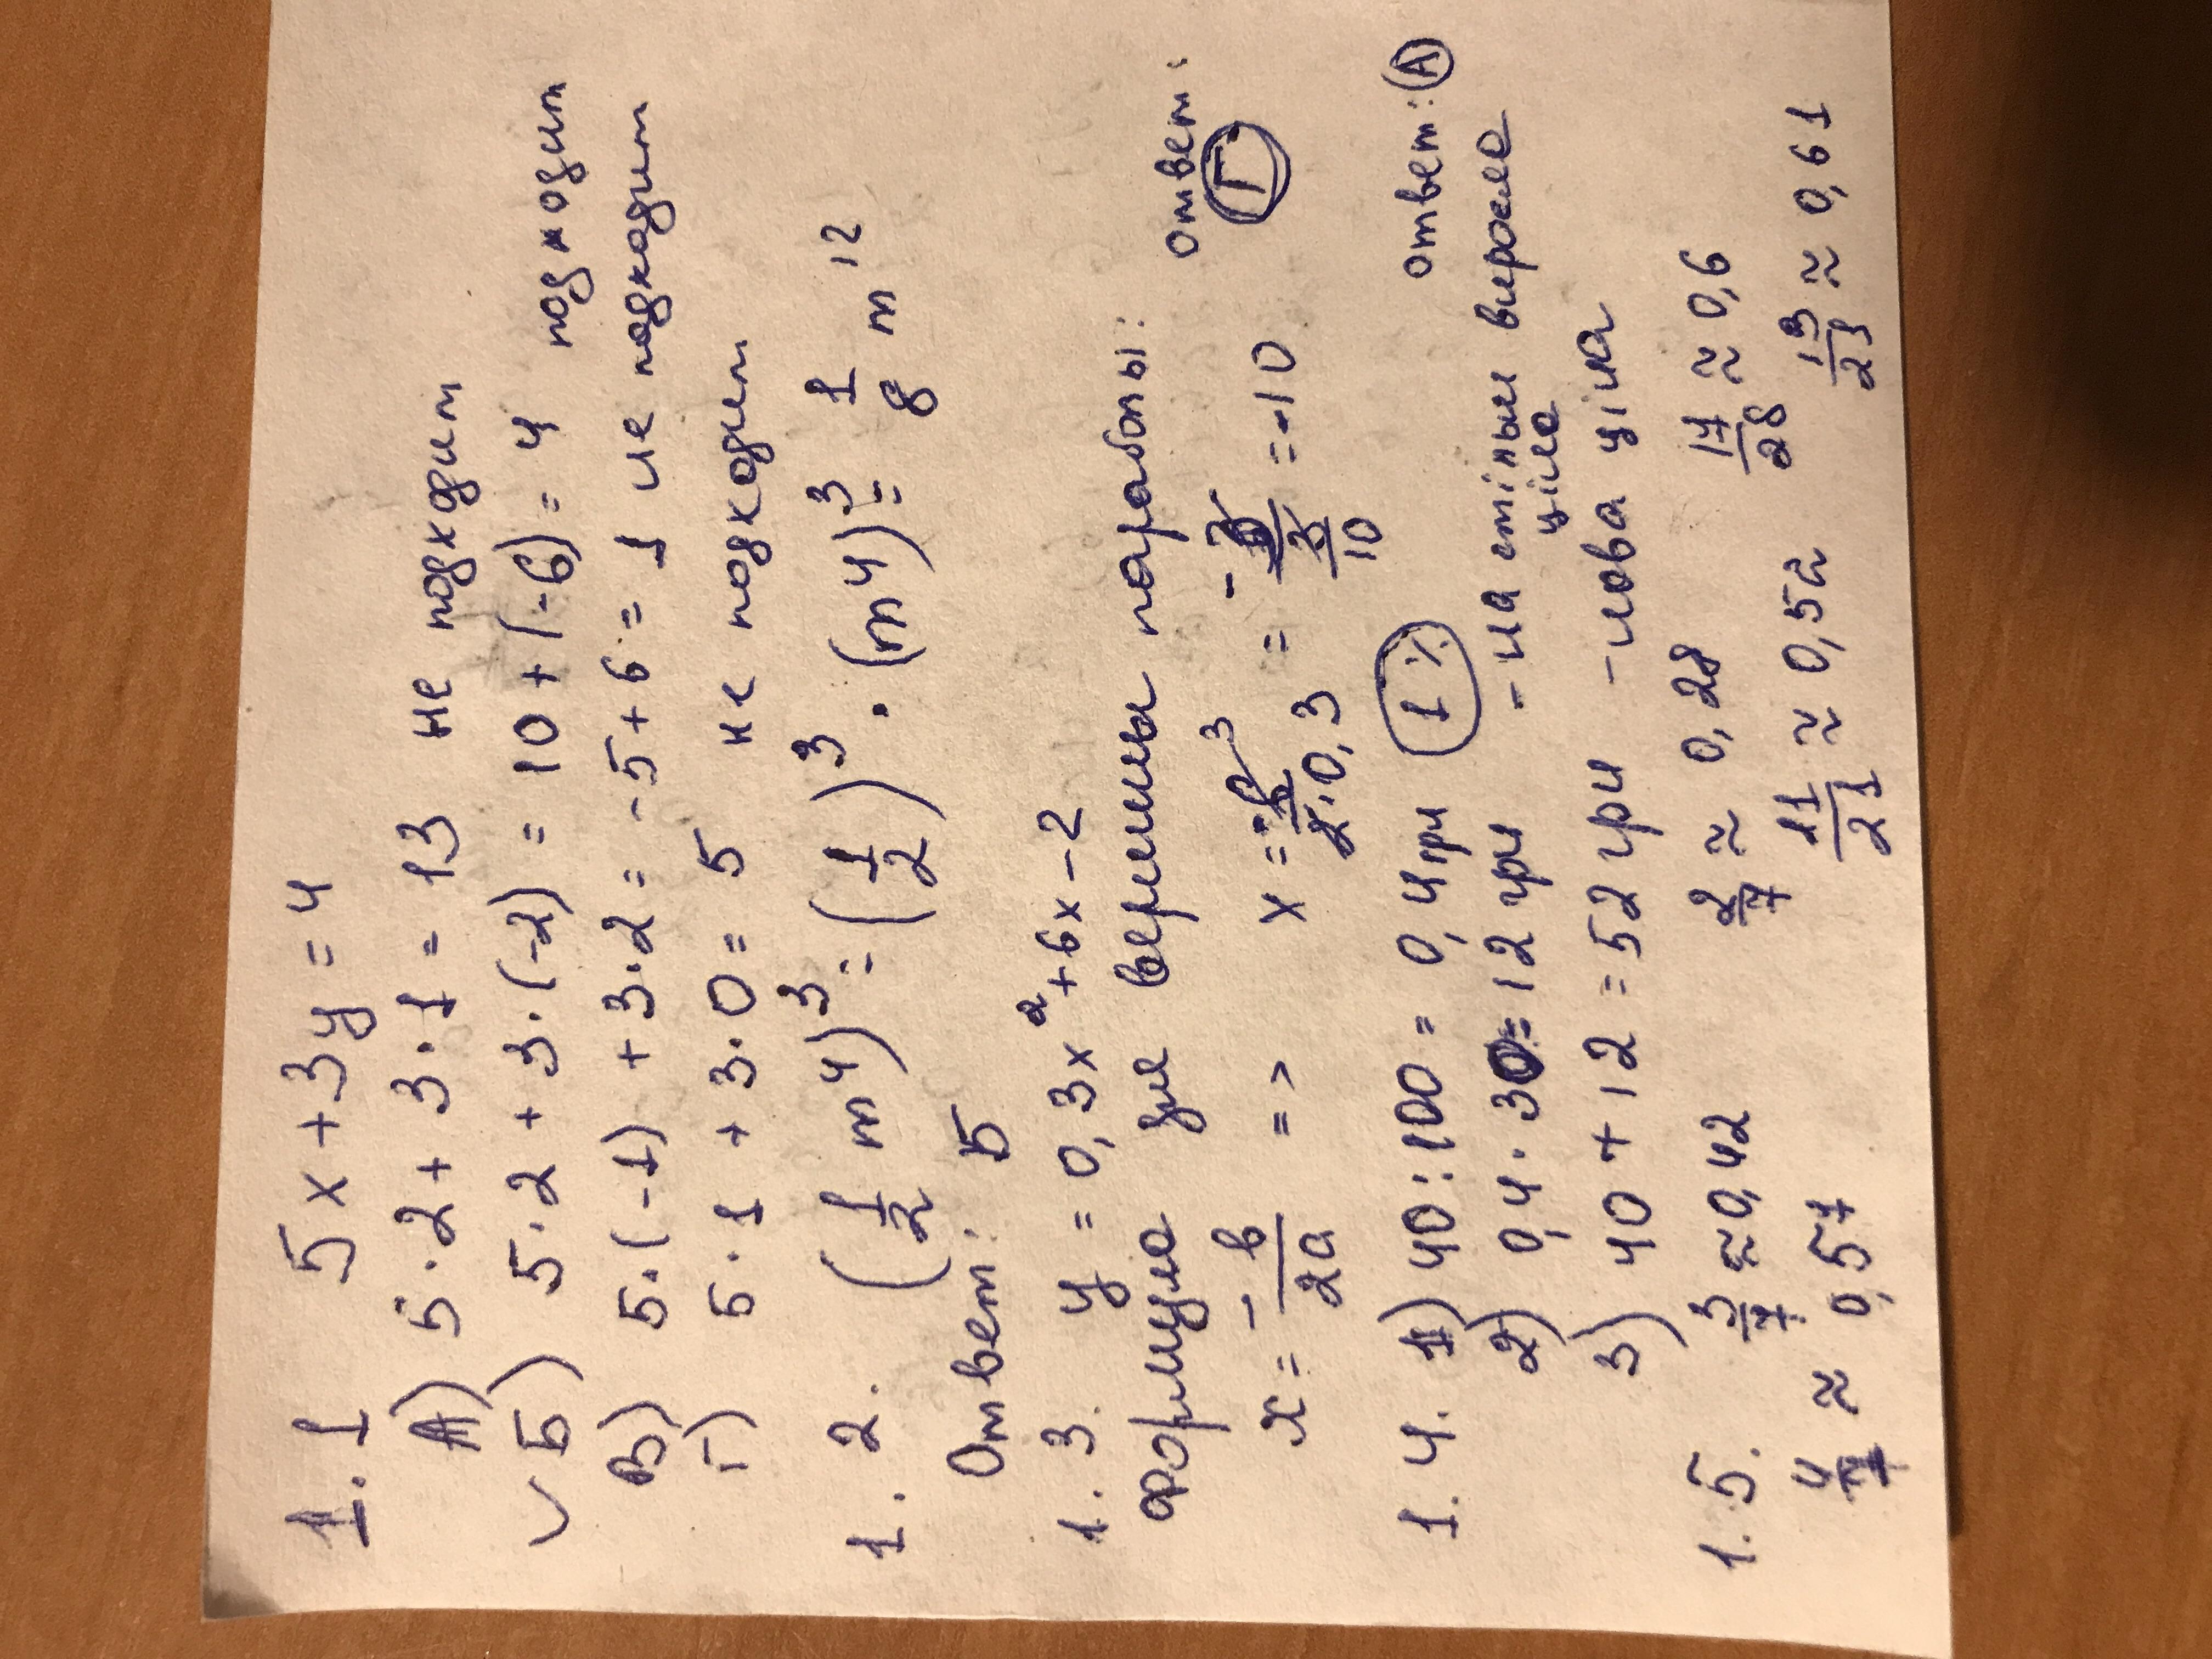 1.1 5x + 3y = 4
А) 5·2 + 3·1 = 13 не подходит
✓ Б) 5·2 + 3·(-2) = 10 + (-6) = 4 подходит
В) 5·(-1) + 3·2 = -5 + 6 = 1 не подходит
Г) 5·1 + 3·0 = 5 не подходит
1.2. (1/2 m⁴)³ = (1/2)³ · (m⁴)³ = 1/8 m¹²
Ответ: Б
1.3. y = 0,3x² + 6x - 2
формула для вершины параболы: ответ:
x = - в/2а => x = -6/2·0,3 = - 3/(3/10) = -10 Г
1.4. 1) 40:100 = 0,4грн 1% ответ: А
2) 0,4·30 = 12 грн - на стільки виросла ціна
3) 40 + 12 = 52 грн - нова ціна
1.5. 3/7 ≈ 0,42 2/7 ≈ 0,28 17/28 ≈ 0,6
4/7 ≈ 0,57 11/21 ≈ 0,52 13/21 ≈ 0,61